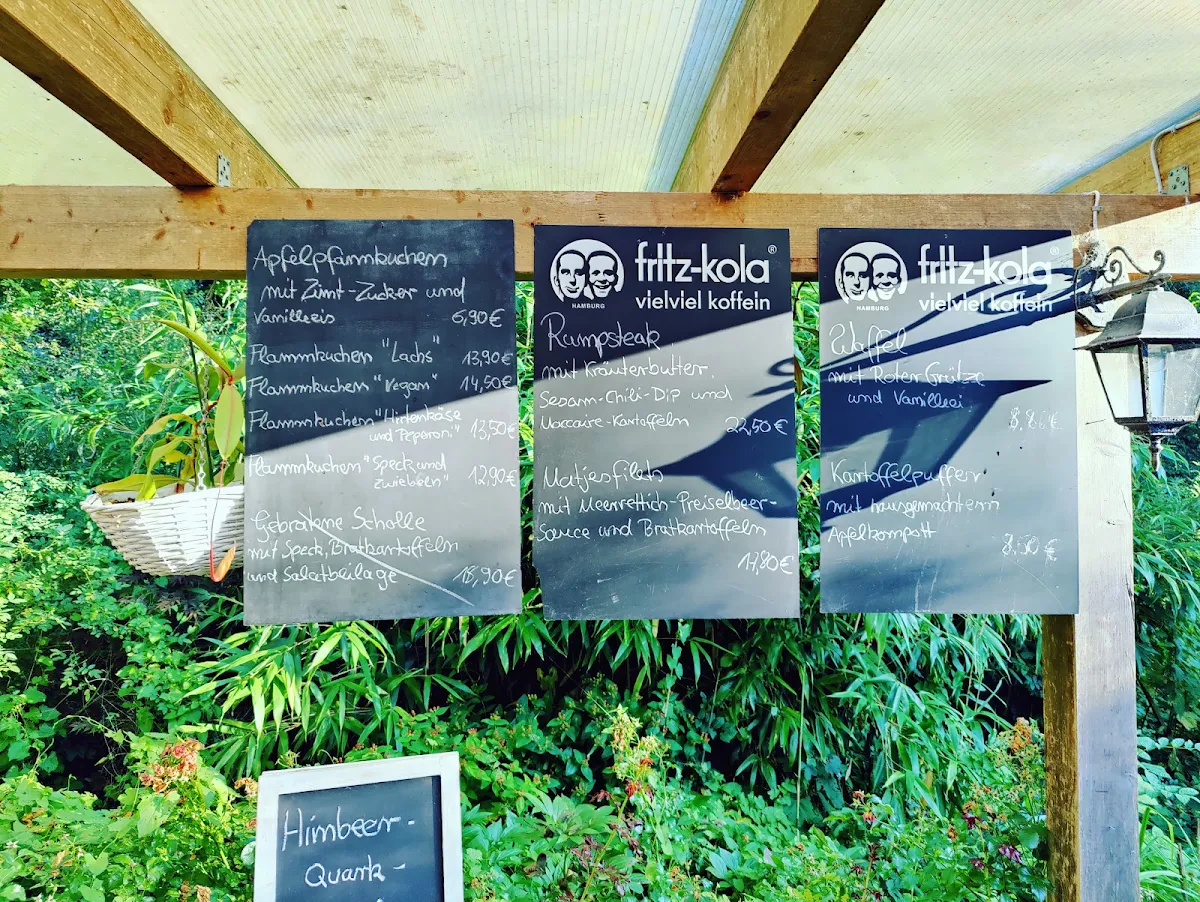 Apfelpfannkuchen
mit Zimt-Zucker und
Vanilleeis 6,90€
Flammkuchen "Lachs" 13,90€
Flammkuchen "Vegan" 14,50€
Flammkuchen "Hirtenkäse
und Peperoni" 13,50€
Flammkuchen "Speck und
Zwiebeln" 12,90€
Gebratene Scholle
mit Speck, Bratkartoffeln
und Salatbeilage 18,90€
HAMBURG
fritz-kola®
vielviel koffein
Rumpsteak
mit Kräuterbutter,
Sesam-Chili-Dip und
Maccaire-Kartoffeln 22,50€
Matjesfilets
mit Meerrettich-Preiselbeer-
Sauce und Bratkartoffeln
17,80€
HAMBURG
fritz-kola®
vielviel koffein
Waffel
mit Roter Grütze
und Vanilleei
Kartoffelpuffer
mit hausgemachtem
Apfelkompott 8,50€
Himbeer-
Quark-